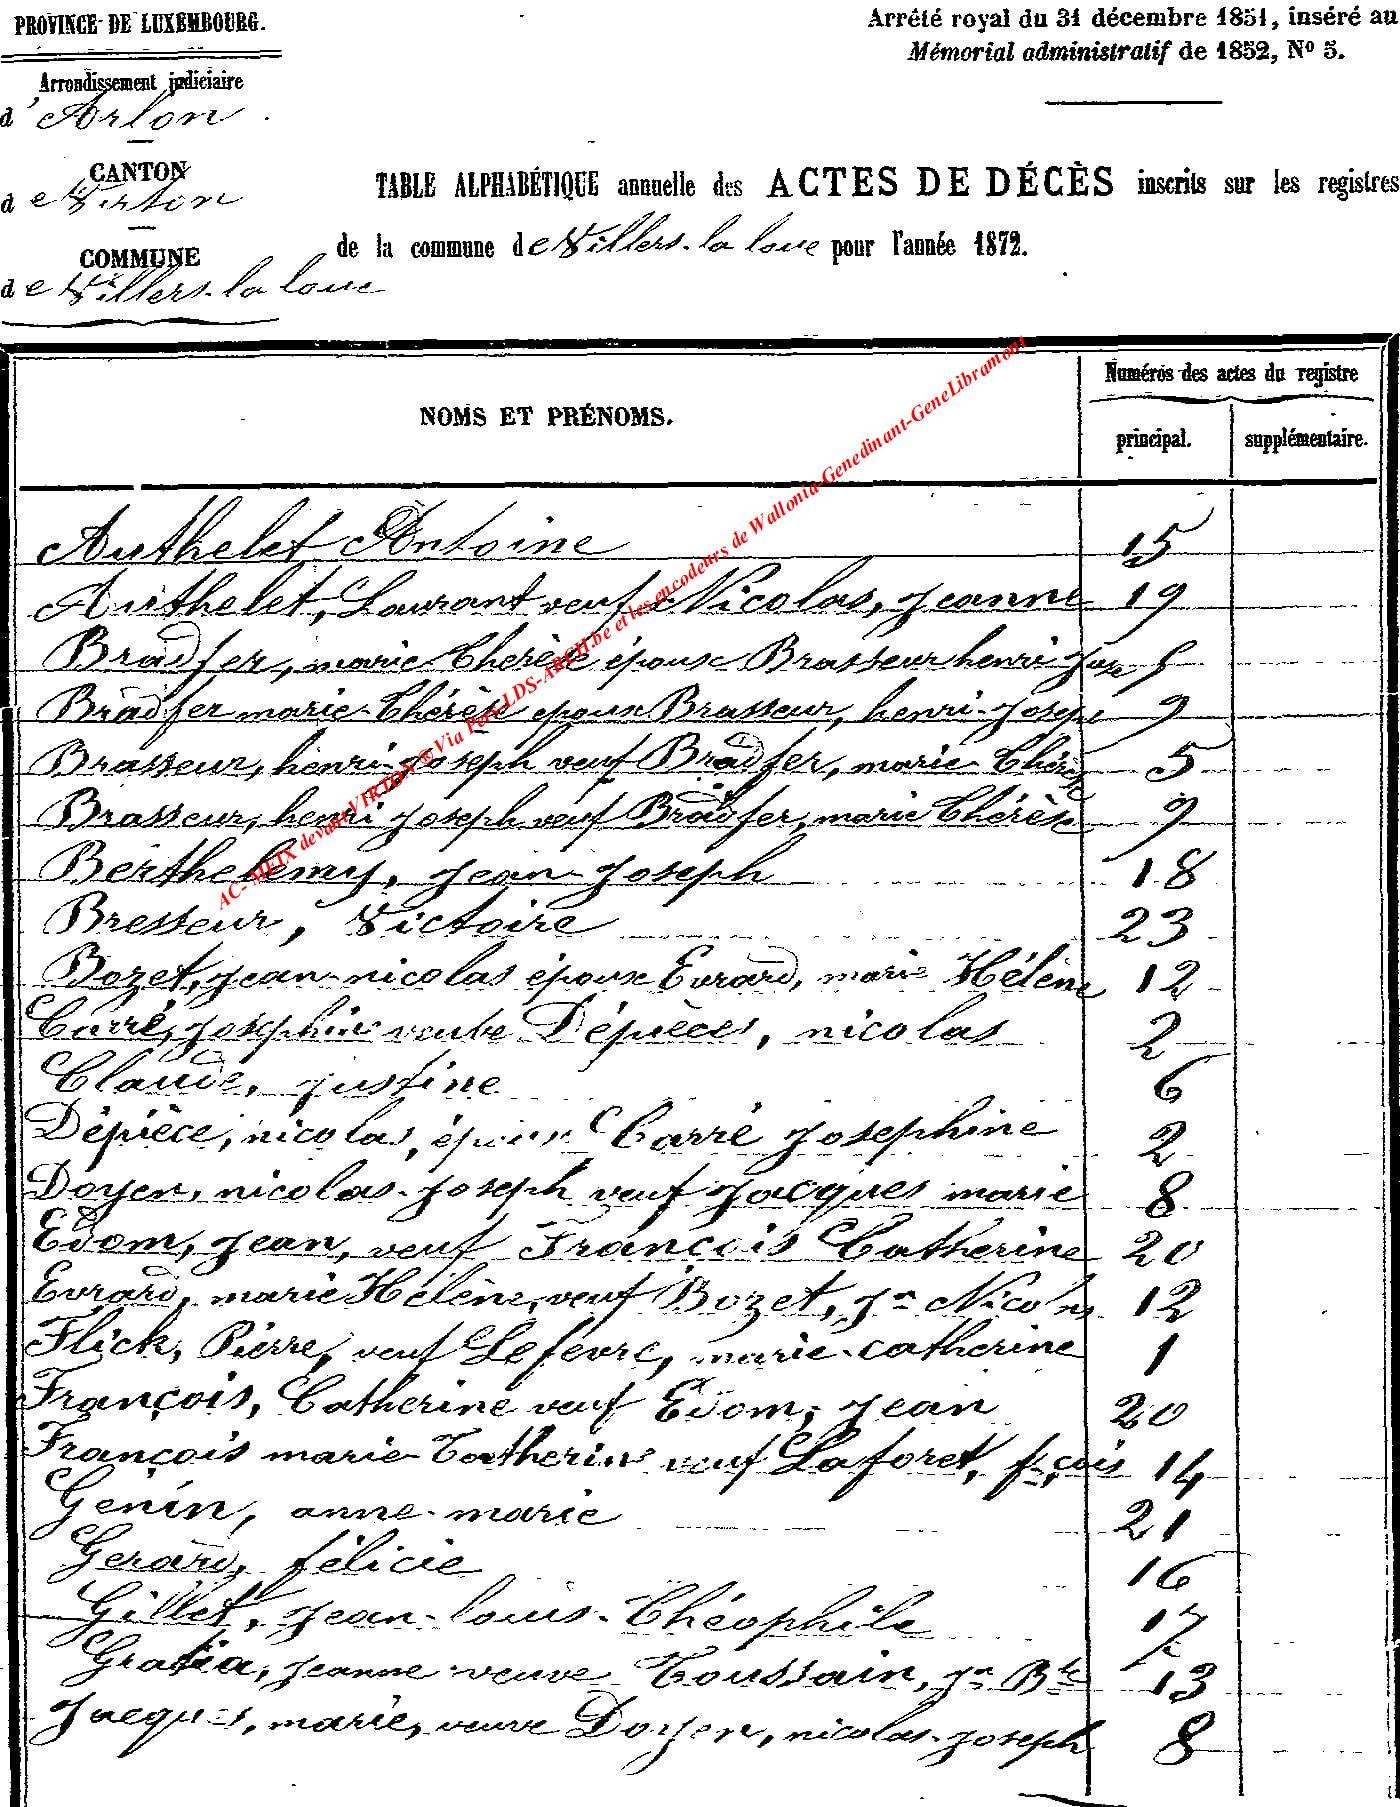 PROVINCE DE LUXEMBOURG.
Arrêté royal du 31 décembre 1851, inséré au
Mémorial administratif de 1852, No 5.
Arrondissement judiciaire
d'Arlon
CANTON
de Virton
COMMUNE
de Villers-la-loue
TABLE ALPHABÉTIQUE annuelle des ACTES DE DÉCÈS inscrits sur les registres
de la commune de Villers-la loue pour l'année 1872.
NOMS ET PRÉNOMS.
Numéros des actes du registre
principal. supplémentaire.
AC-MEIX devant VIRTON ® Via Pers-LDS-ARCH.be et les encodeurs de Wallonia-Genedinant-GeneLibramont
Authelet Antoine 15
Authelet, Laurant veuf Nicolas, Jeanne 19
Bradfer, marie Thérèse épouse Brasseur henri Jose 5
Bradfer marie-Thérèse épouse Brasseur, henri-Joseph 9
Brasseur, henri-Joseph veuf Bradfer, marie-Thérèse 5
Brasseur, henri Joseph veuf Bradfer, marie Thérèse 9
Berthelemy, Jean-Joseph 18
Bresseur, Victoire 23
Bozet, Jean-nicolas épouse Evrard, marie Hélène 12
Carré, Josephine veuve Dépièces, nicolas 2
Claude, Justine 6
Dépièce, nicolas, époux Carré Josephine 2
Doyen, nicolas-Joseph veuf Jacques marie 8
Edom, Jean, veuf François Catherine 20
Evrard, marie Hélène, veuf Bozet, Jn Nicolas 12
Flick, Pierre, veuf Lefevre, marie-catherine 1
François, Catherine veuf Edom, Jean 20
François marie-Catherine veuf Laforet, fçois 14
Genin, anne-marie 21
Gerard, félicie 16
Gillet, Jean-louis-Théophile 17
Gratia, Jeanne veuve Toussain, Jn Bte 13
Jacques, marie, veuve Doyen, nicolas-Joseph 8